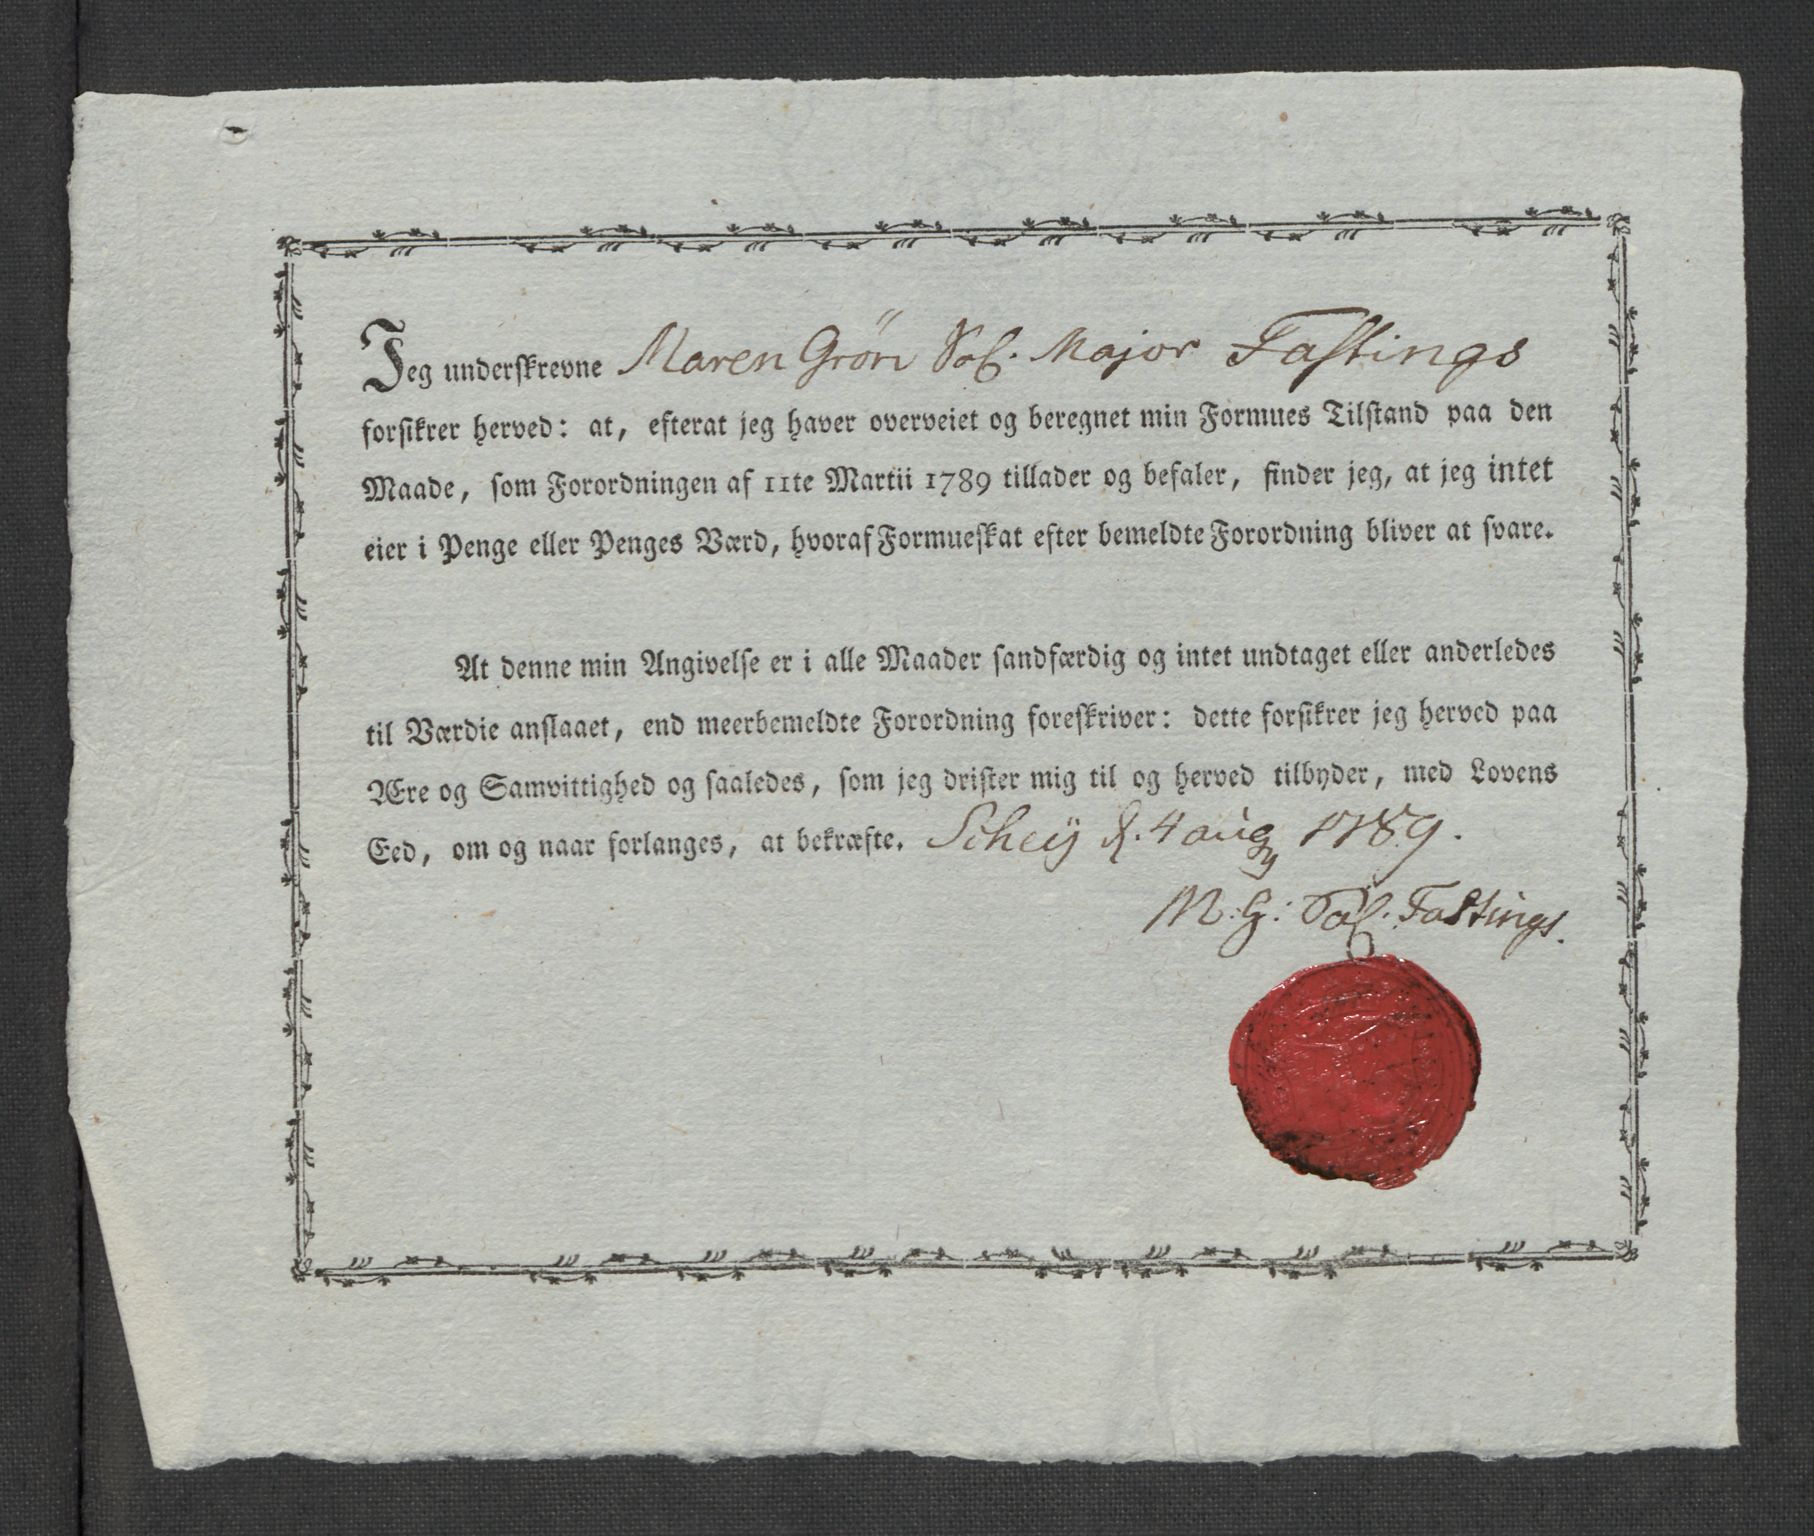 Jeg underskrevne Maren Grön Sal. Major Fastings
forsikrer herved: at, efterat jeg haver overveiet og beregnet min Formues Tilstand paa den
Maade, som Forordningen af 11te Martii 1789 tillader og befaler, finder jeg, at jeg intet
eier i Penge eller Penges Værd, hvoraf Formueskat efter bemeldte Forordning bliver at svare.
At denne min Angivelse er i alle Maader sandfærdig og intet undtaget eller anderledes
til Værdie anslaaet, end meerbemeldte Forordning foreskriver: dette forsikrer jeg herved paa
Ære og Samvittighed og saaledes, som jeg drister mig til og herved tilbyder, med Lovens
Eed, om og naar forlanges, at bekræfte. Scheÿ d. 4 aug 1789.
M: G: Sal. Fastings.